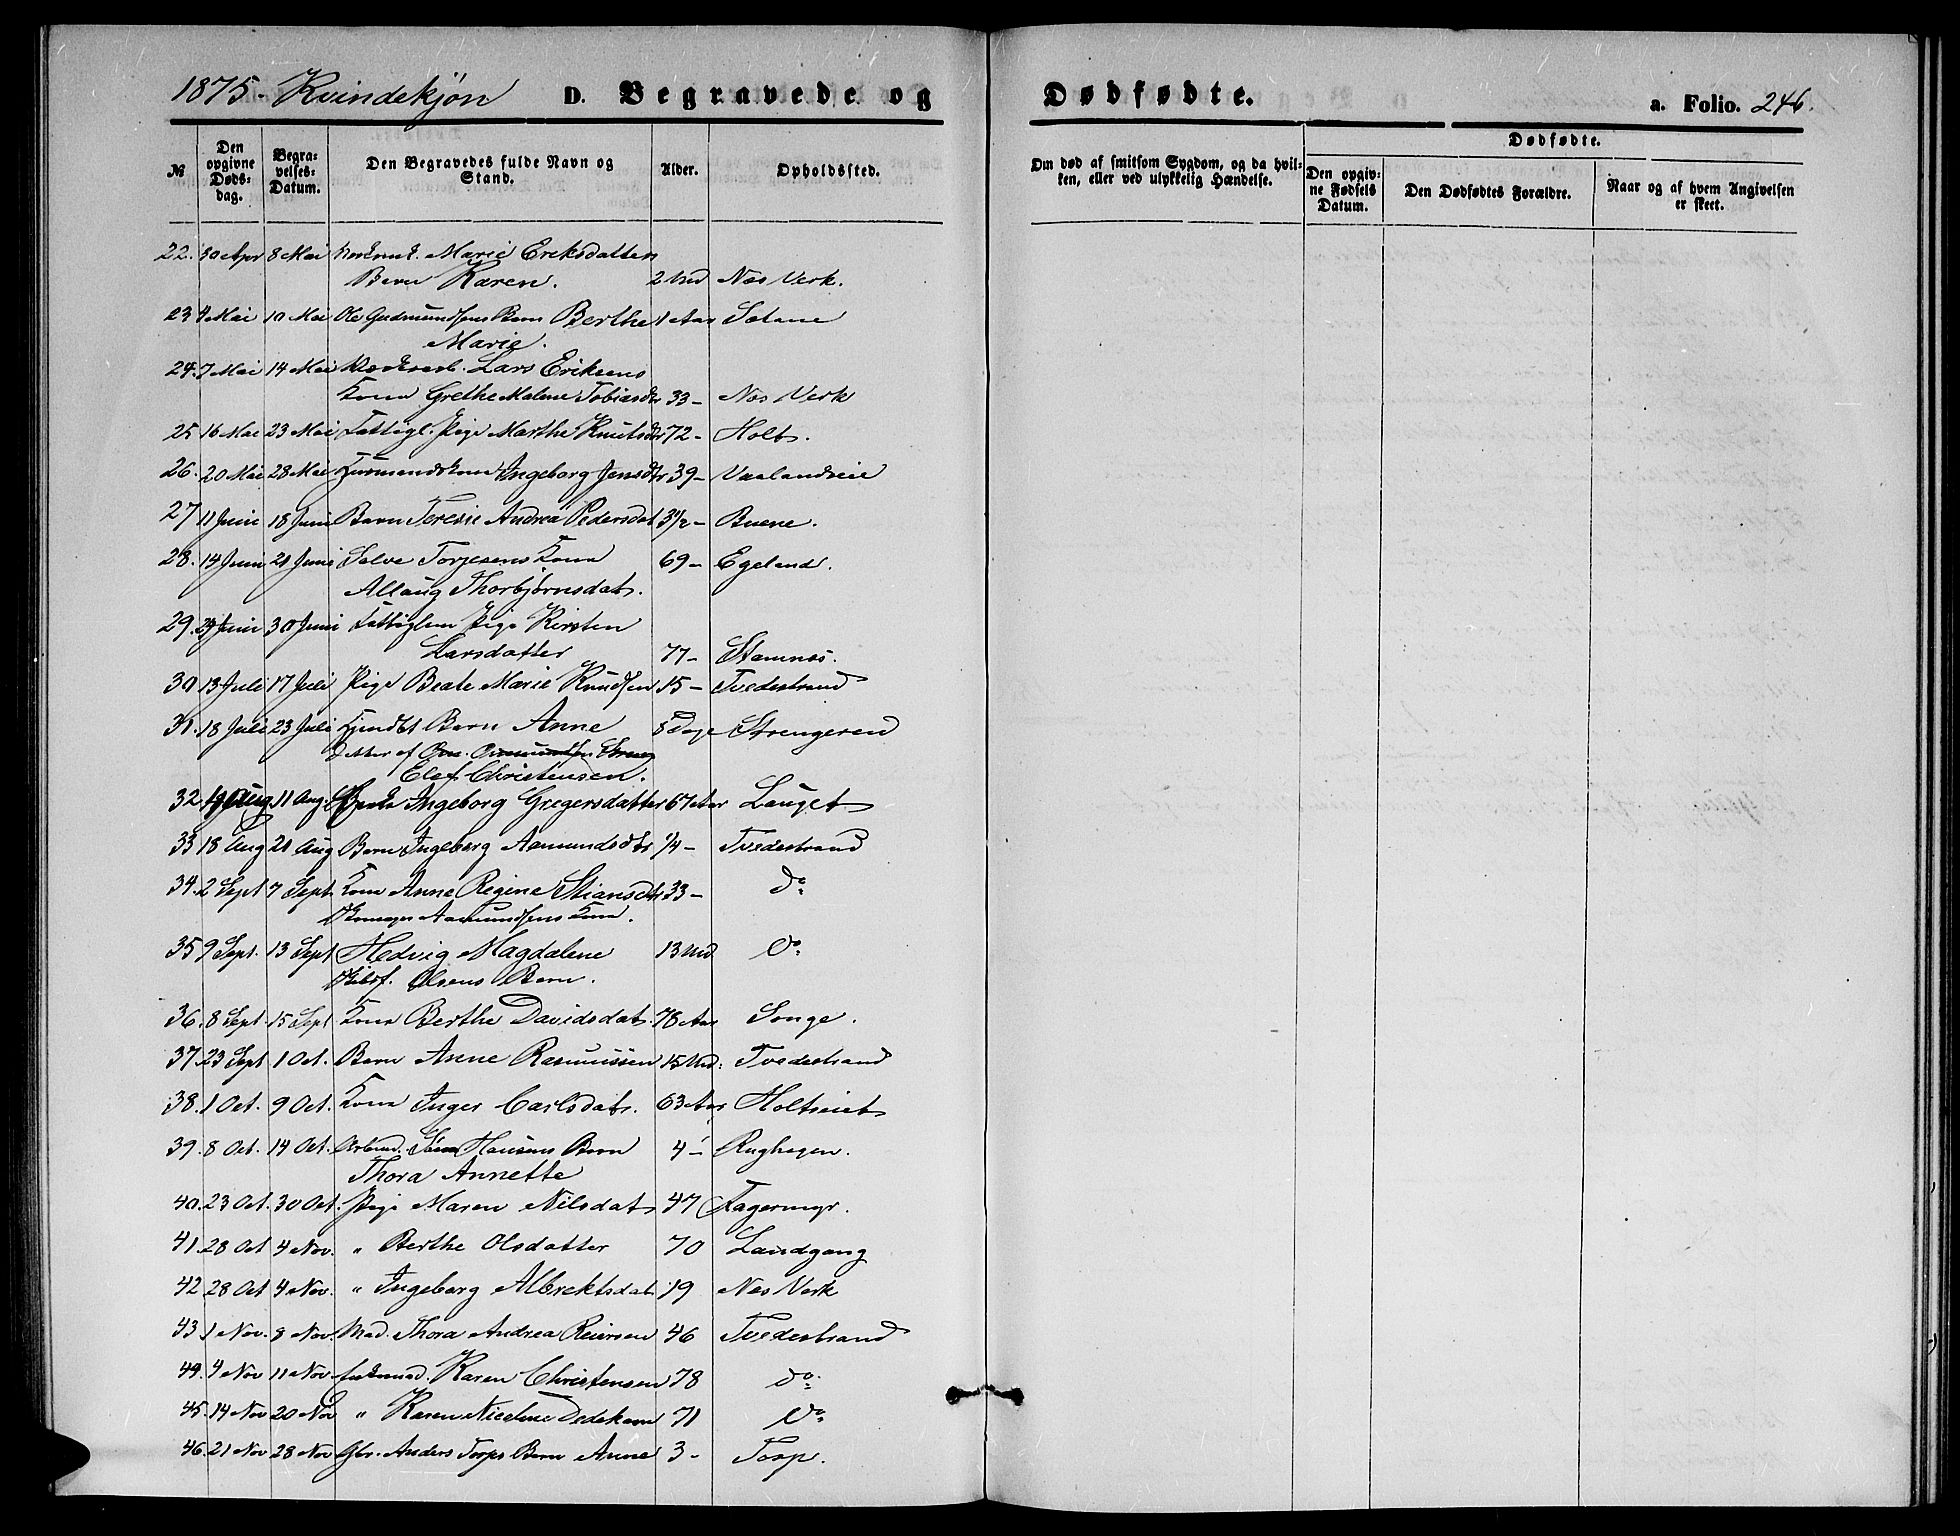 1875. Kvindekjøn D. Begravede og Dødfødte. a. Folio. 246.
Dødfødte.
№ Den opgivne Døds-dag. Begra-velses-Datum. Den Begravedes fulde Navn og Stand. Alder. Opholdssted. Om død af smitsom Sygdom, og da hvil-ken, eller ved ulykkelig Hændelse. Den opgiv-ne Fødsels Datum. Den Dødfødtes Forældre. Naar og af hvem Angivelsen er skeet.
22. 30 Apr 8 Mai Marie Eriksdatters
Barn Karen. 2 Md Nes Verk.
23 4 Mai 10 Mai Ole Gudmundsens Barn Berthe 1 Aar Sætane
Marie.
24. 7 Mai 14 Mai Lars Eriksens
Kona Grethe Malene Tobiasdtr 33 - Nes Verk
25 16 Mai 23 Mai Fattigl. Pige Marthe Knutsdtr 72 - Holt.
26. 20 Mai 28 Mai Huusmandskone Ingeborg Jensdtr 39 - Vaalandseie
27 11 Juni 18 Juni Barn Teresie Andrea Pedersdat 3 1/2 - Buene.
28. 14 Juni 21 Juni Salve Torjesens Kona 69 - Egeland.
Allaug Thorbjørnsdat.
29. 24 Juni 30 Juni Fattiglem Pige Kirsten
Larsdatter 77 - Stamnes.
30 13 Juli 17 Juli Pige Beate Marie Knudsen 15 - Tvedestrand
31. 18 Juli 23 Juli Barn Anne 8 Dage Strengereid
Datter af
Elef Christensen.
32 Aug 11 Aug. Ingeborg Gregersdatter 67 Aar Lauget
33 18 Aug 21 Aug Barn Ingeborg Aamundsdtr 1/4 - Tvedestrand
34. 2 Sept 7 Sept Kone Anne Regine Stiansdtr 33 - do
Aamundsens Kone.
35 9 Sept. 13 Sept Hedvig Magdalene 13 Md do
Olsens Barn.
36. 8 Sept 15 Sept Kona Berthe Davidsdat. 78 Aar Songe.
37. 23 Sept 1 Oct. Barn Anne Rasmussen 15 Md: Tvedestrand
38. 1 Oct. 9 Oct. Kona Inger Carlsdat. 63 Aar Holtseiet
39. 8 Oct. 14 Oct. Arbmd. Søren Hansens Barn 4 - Rughagen.
Thora Annette
40. 23 Oct. 30 Oct. Pige Maren Nilsdat 47 Fagermyr.
41. 28 Oct 4 Nov. " Berthe Olsdatter 70 Landgang
42 28 Oct 4 Nov. " Ingeborg Albrektsdat 19 Nes Verk
43 1 Nov. 8 Nov. Mad. Thora Andrea Reiersen 46 Tvedestrand
44. 4 Nov 11 Nov Enkemad. Karen Christensen 78 do
45. 14 Nov 20 Nov " Karen Nicoline Dedekam 71 do
46. 21 Nov 28 Nov Gbr. Anders Torps Barn Anne 3 - Torp.